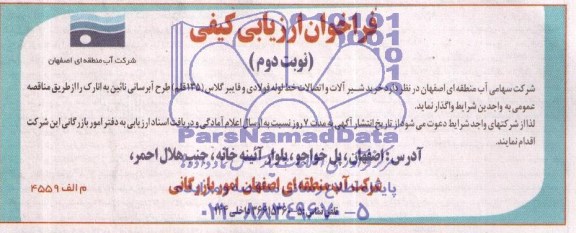 فراخوان ارزیابی کیفی
(نوبت دوم)
شرکت آب منطقه ای اصفهان
شرکت سهامی آب منطقه ای اصفهان در نظر دارد خرید شیر آلات و اتصالات خط لوله فولادی و فایبر گلاس (۱۳۵ قلم) طرح آبرسانی نائین به انارک را از طریق مناقصه
عمومی به واجدین شرایط واگذار نماید.
لذا از شرکتهای واجد شرایط دعوت می شود از تاریخ انتشار آگهی به مدت ۷ روز نسبت به ارسال اعلام آمادگی و دریافت اسناد ارزیابی به دفتر امور بازرگانی این شرکت
اقدام نمایند.
ParsNamadData
آدرس: اصفهان، پل خواجو، بلوار آئینه خانه، جنب هلال احمر،
شرکت آب منطقه ای اصفهان امور بازرگانی
م الف ۴۵۵۹